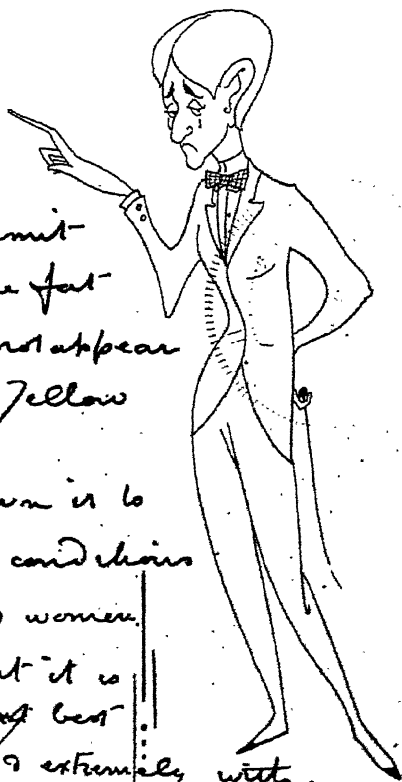 mit
e fat
not appear
Yellow
is to
conditions
women
t it is
best
extremely with